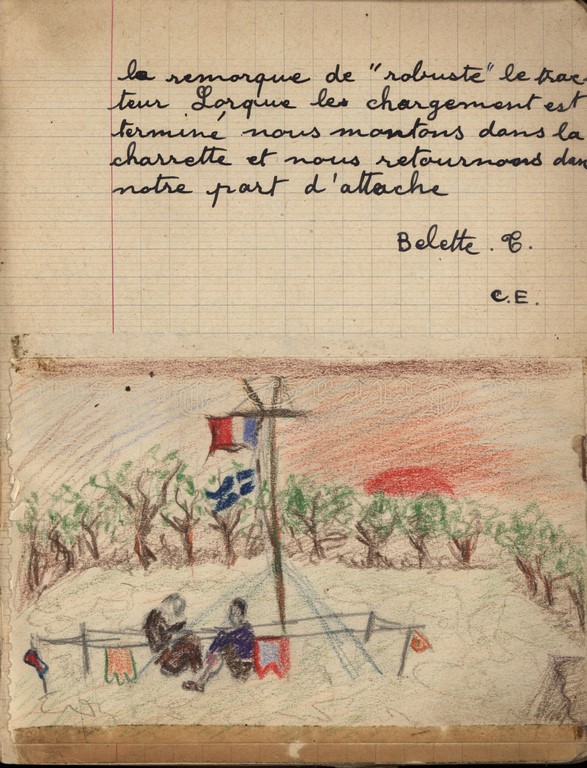 la remorque de "robuste" le trac-
teur Lorque les chargement est
terminé nous montons dans la
charrette et nous retournons dans
notre part d'attache
Belette . C.
C.E.